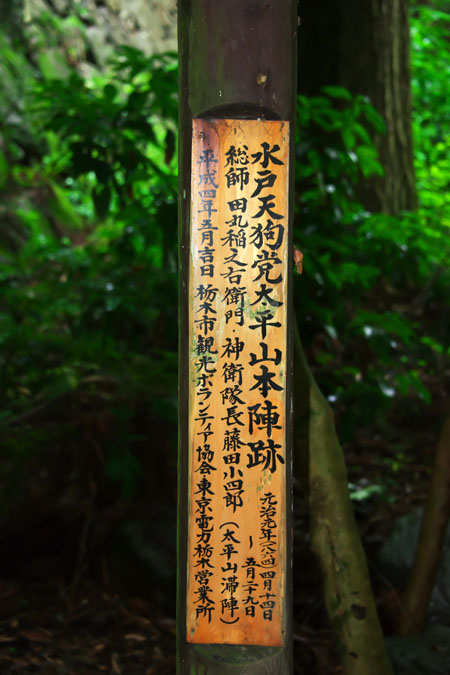 水戸天狗党太平山本陣跡
元治元年(一八六四)四月十四日
~五月二十九日
総師 田丸稲之右衛門・神衛隊長 藤田小四郎(太平山滞陣)
平成四年五月吉日 栃木市観光ボランティア協会 東京電力栃木営業所